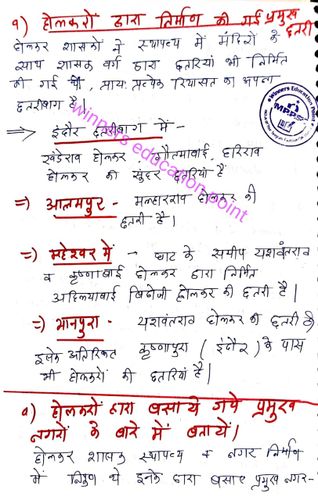 १) होलकरों द्वारा निर्माण की गई प्रमुख छतरी
होलकर शासकों ने स्थापत्य में मंदिरों के
साथ शासक वर्ग द्वारा छतरियां भी निर्मित
की गई थी, प्रायः प्रत्येक रियासत का अपना
छतरीबाग है।
=> इंदौर छतरीबाग में -
खंडेराव होलकर, गौतमाबाई, हरिराव
होलकर की सुंदर छतरियाँ हैं
=) आलमपुर - मल्हारराव होलकर की
छतरी है।
=) महेश्वर में - घाट के समीप यशवंतराव
व कृष्णाबाई होलकर द्वारा निर्मित
अहिल्याबाई विठोजी होलकर की छतरी है।
=) भानपुरा - यशवंतराव होलकर की छतरी है
इसके अतिरिक्त कृष्णापुरा (इंदौर) के पास
भी होलकरों की छतरियाँ है।
०) होलकरों द्वारा बसाये गये प्रमुख
नगरों के बारे में बतायें।
होलकर शासक स्थापत्य व नगर निर्माण
में निपुण थे इनके द्वारा बसाए प्रमुख नगर-
winners education point
Winners Education Point
MPPSC